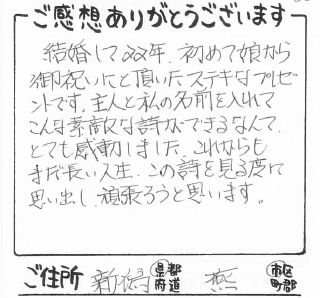 ご感想ありがとうございます
結婚して22年、初めて娘から
御祝いにと頂いたステキなプレゼ
ントです。主人と私の名前を入れて
こんな素敵な詩ができるなんて、
とても感動しました。これからも
まだ長い人生、この詩を見る度に
思い出し、頑張ろうと思います。
ご住所 新潟 県都府道 燕 市区町郡